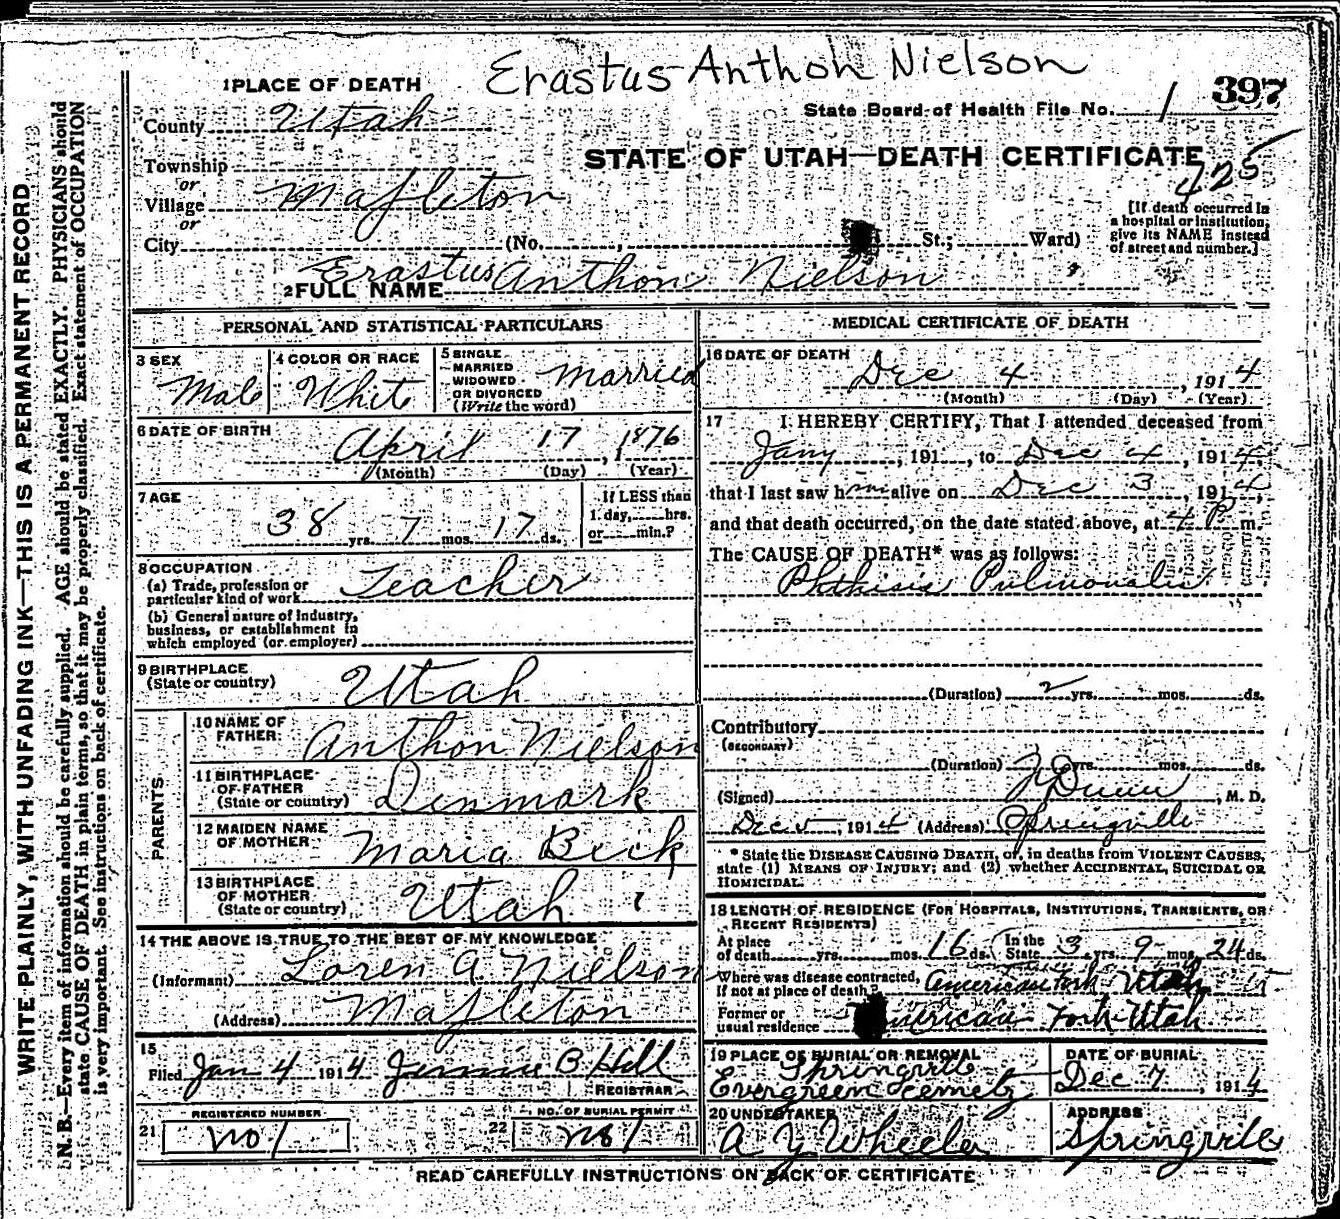 Erastus Anthon Nielson
397
1 PLACE OF DEATH
State Board of Health File No. 1
County Utah
STATE OF UTAH—DEATH CERTIFICATE
425
Township
or
Village Mapleton
or
City (No. , St.; Ward)
[If death occurred in
a hospital or institution,
give its NAME instead
of street and number.]
2 FULL NAME Erastus Anthon Nielson
PERSONAL AND STATISTICAL PARTICULARS
3 SEX
Male
4 COLOR OR RACE
White
5 SINGLE
MARRIED
WIDOWED
OR DIVORCED
(Write the word)
Married
6 DATE OF BIRTH
April 17, 1876
(Month) (Day) (Year)
7 AGE
38 yrs. 7 mos. 17 ds.
If LESS than
1 day, hrs.
or min.?
8 OCCUPATION
(a) Trade, profession or
particular kind of work Teacher
(b) General nature of industry,
business, or establishment in
which employed (or employer)
9 BIRTHPLACE
(State or country) Utah
PARENTS
10 NAME OF
FATHER Anthon Nielson
11 BIRTHPLACE
OF FATHER
(State or country) Denmark
12 MAIDEN NAME
OF MOTHER Maria Beck
13 BIRTHPLACE
OF MOTHER
(State or country) Utah
14 THE ABOVE IS TRUE TO THE BEST OF MY KNOWLEDGE
(Informant) Loren A. Nielson
(Address) Mapleton
15
Filed Jan 4 1914 Jennie B. Hill
REGISTRAR
REGISTERED NUMBER
21 No 1
NO. OF BURIAL PERMIT
22 No 1
MEDICAL CERTIFICATE OF DEATH
16 DATE OF DEATH
Dec 4, 1914
(Month) (Day) (Year)
17 I HEREBY CERTIFY, That I attended deceased from
Jany, 191 , to Dec 4, 1914,
that I last saw him alive on Dec 3, 1914,
and that death occurred, on the date stated above, at 4 P m.
The CAUSE OF DEATH* was as follows:
Phthisis Pulmonalis
(Duration) 2 yrs. mos. ds.
Contributory
(SECONDARY)
(Duration) yrs. mos. ds.
(Signed) Dunn, M. D.
Dec 5, 1914 (Address) Springville
* State the DISEASE CAUSING DEATH, or, in deaths from VIOLENT CAUSES,
state (1) MEANS OF INJURY; and (2) whether ACCIDENTAL, SUICIDAL OR
HOMICIDAL.
18 LENGTH OF RESIDENCE (FOR HOSPITALS, INSTITUTIONS, TRANSIENTS, OR
RECENT RESIDENTS)
At place
of death yrs. mos. 16 ds. In the
State 3 yrs. 9 mos. 24 ds.
Where was disease contracted,
if not at place of death? American Fork Utah
Former or
usual residence American Fork Utah
19 PLACE OF BURIAL OR REMOVAL
Springville
Evergreen Cemetz
DATE OF BURIAL
Dec 7, 1914
20 UNDERTAKER
A Y Wheeler
ADDRESS
Springville
READ CAREFULLY INSTRUCTIONS ON BACK OF CERTIFICATE
WRITE PLAINLY, WITH UNFADING INK—THIS IS A PERMANENT RECORD
N. B.—Every item of information should be carefully supplied. AGE should be stated EXACTLY. PHYSICIANS should
state CAUSE OF DEATH in plain terms, so that it may be properly classified. Exact statement of OCCUPATION
is very important. See instructions on back of certificate.